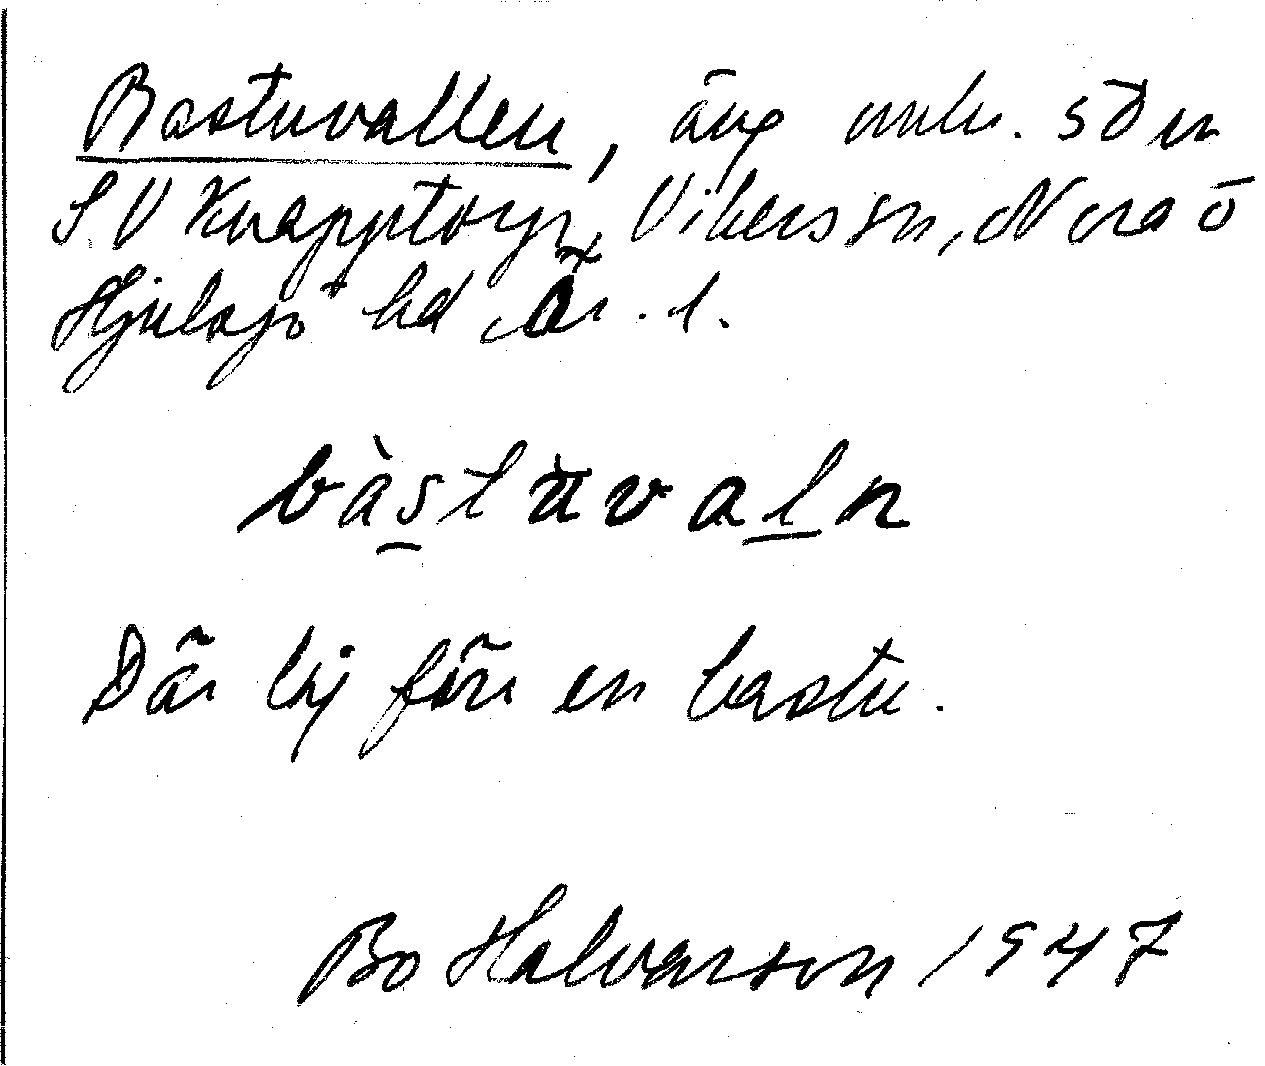 Bastuvallen, äng omkr. 500 m
SV Knapptorp, Vikers sn, Nora o
Hjulsjö hd Ör. l.
bàstu̇valn
Där låg förr en bastu.
Bo Halvarson 1947